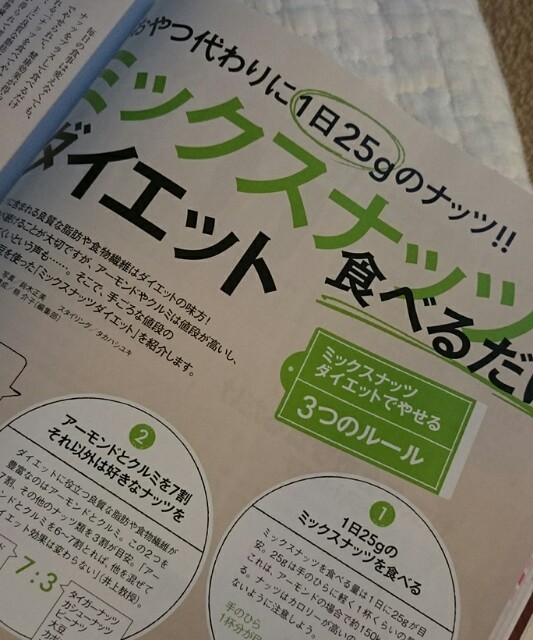 おやつ代わりに1日25gのナッツ!!
ミックスナッツ
食べるだけ
ダイエット
に含まれる良質な脂肪や食物繊維はダイエットの味方!
続けることが大切ですが、アーモンドやクルミは値段が高いし、
くいという声も……。そこで、手ごろな値段の
を使った「ミックスナッツダイエット」を紹介します。
写真 鈴木正美
スタイリング/タカハシユキ
ミックスナッツ
ダイエットでやせる
3つのルール
1
1日25gの
ミックスナッツを食べる
ミックスナッツを食べる量は1日に25gが目
安。25gは手のひらに軽く1杯くらいの
これは、アーモンドの場合で約
る。ナッツはカロリーが高いの
ないように注意しよう。
手のひら
1杯分が目
2
アーモンドとクルミを7割
それ以外は好きなナッツを
ダイエットに役立つ良質な脂肪や食物繊維が
豊富なのはアーモンドとクルミ。この2つを
7割、その他のナッツ類を3割が目安。「アー
ンドとクルミを6~7割とれば、他を混ぜて
イエット効果は変わらない」(井上教授)。
7:3
タイガーナッツ
カシューナッツ
ピーナツ
大豆
毎日の食事は変えなくても、